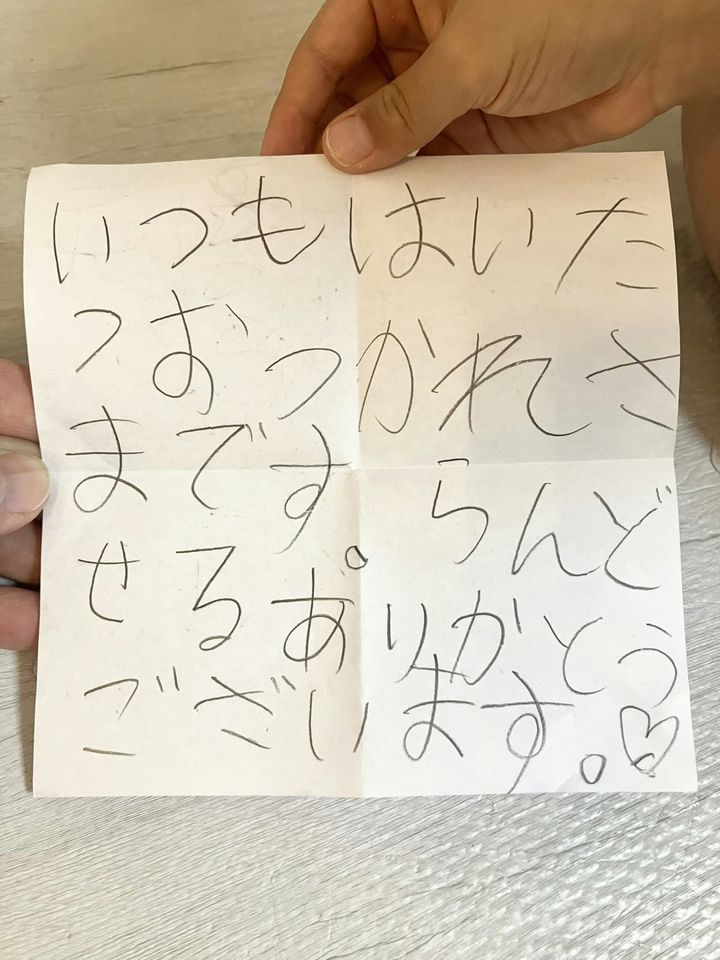 いつもはいた
つおつかれさ
まです。らんど
せるありがとう
ございます。♡